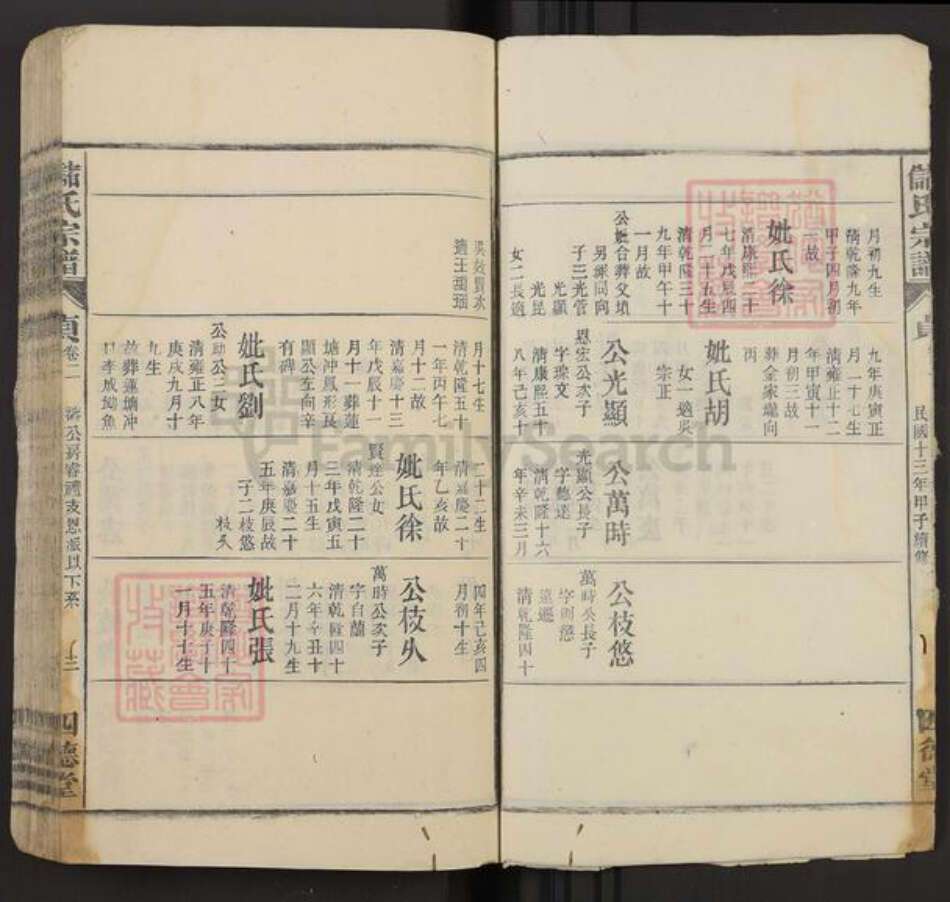 儲氏宗譜
貞
民國十三年甲子續修
四德堂
月初九生
清乾隆九年
甲子四月初
故
妣氏徐
清康熙二十
七年戊辰四
月二十五生
清乾隆三十
九年甲午十
一月故
公妣合葬父墳
另冢同向
子三光管
光顯
光昆
女二長適
九年庚寅正
月二十七生
清雍正十二
年甲寅十一
月初三故
葬金家壠向
丙
妣氏胡
女一適吳
宗正
公光顯
恩宏公次子
字璨文
清康熙五十
八年己亥十
公萬時
光顯公長子
字聽達
清乾隆十六
年辛未三月
公枝悠
萬時公長子
字則悠
清乾隆四十
適王瑚瑠
月十七生
清乾隆五十
一年丙午七
月十二故
清嘉慶十三
年戊辰十一
月十一葬蓮
塘冲鳳形艮
顯公左向辛
有碑
妣氏劉
公勛公三女
清雍正八年
庚戌九月十
九生
故葬蓮塘冲
二十二生
清嘉慶二十
年乙亥故
妣氏徐
賢達公女
清乾隆二十
三年戊寅五
月十五生
清嘉慶二十
五年庚辰故
子二枝悠
枝久
四年己亥四
月初十生
公枝久
萬時公次子
字自蘭
清乾隆四十
六年辛丑十
二月十九生
妣氏張
清乾隆四十
五年庚子十
一月十十生
儲氏宗譜
貞
卷二
濟公房睿禮支恩派以下系
四德堂
FamilySearch